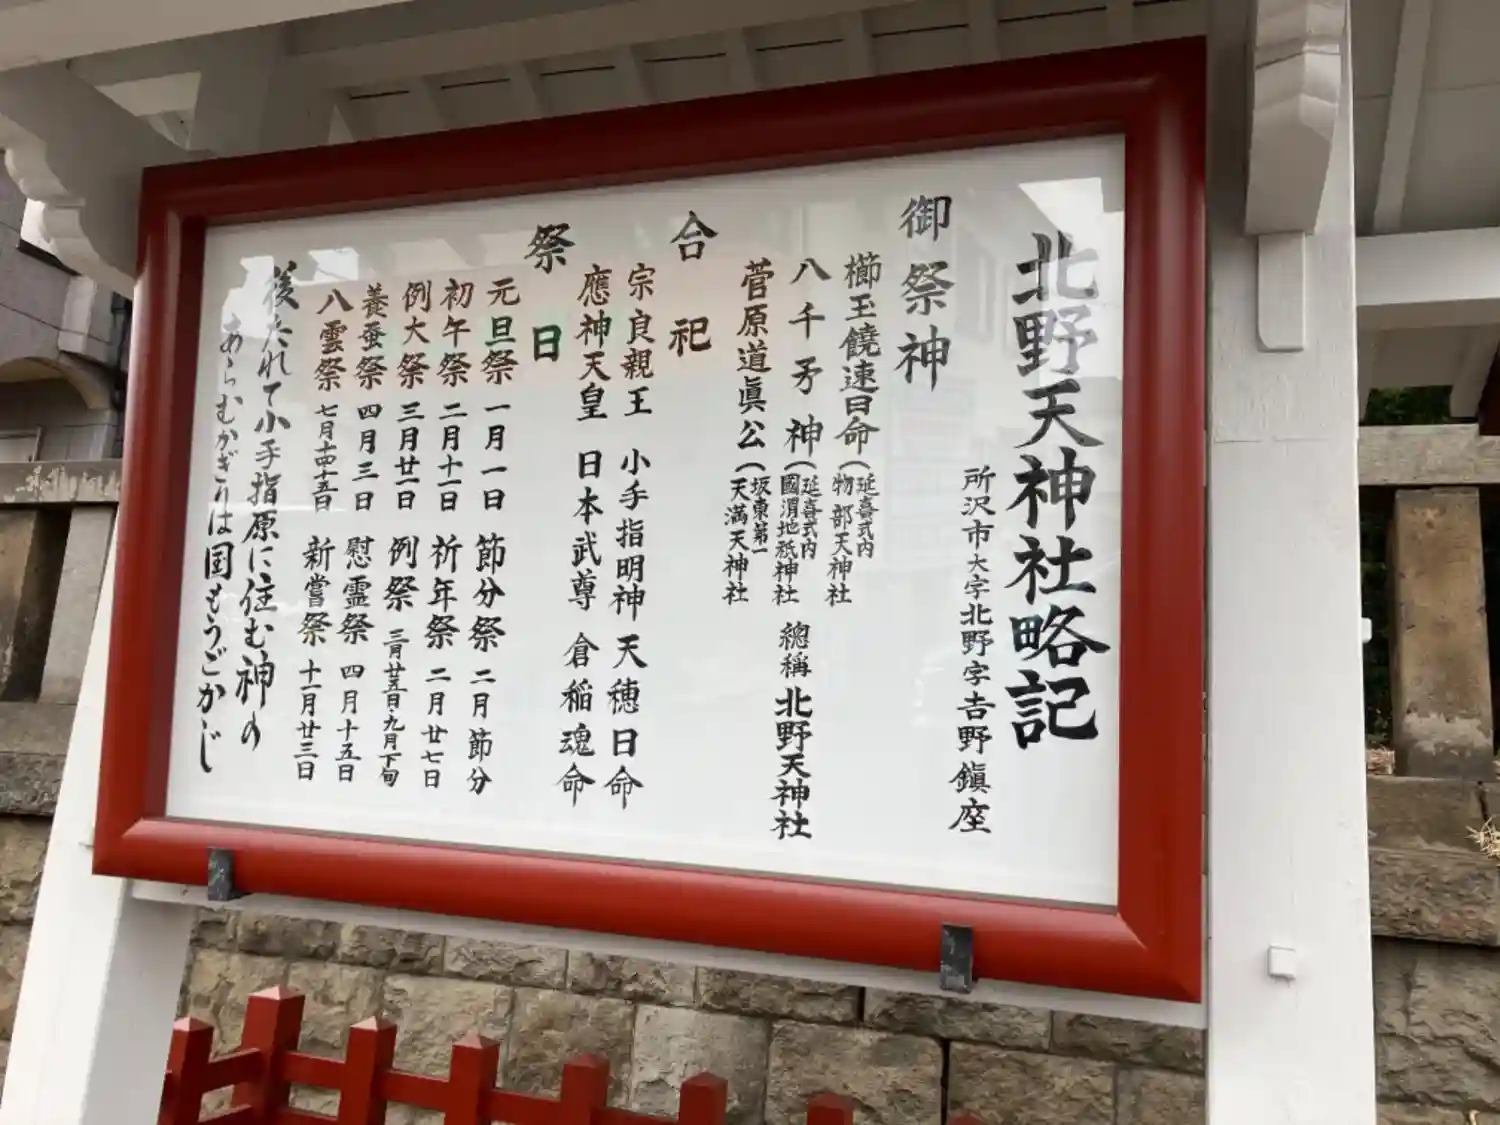 北野天神社略記
所沢市大字北野字吉野鎭座
御祭神
櫛玉饒速日命（延喜式内物部天神社
八千矛神（延喜式内國渭地祇神社
菅原道眞公（坂東第一天満天神社
總稱北野天神社
合祀
宗良親王 小手指明神 天穂日命
應神天皇 日本武尊 倉稲魂命
祭日
元旦祭 一月一日 節分祭 二月節分
初午祭 二月十一日 祈年祭 二月廿七日
例大祭 三月廿一日 例祭 三月廿五日・九月下旬
養蚕祭 四月三日 慰霊祭 四月十五日
八雲祭 七月十四十五日 新嘗祭 十一月廿三日
後たれて小手指原に住む神の
あらむかぎりは国もうごかじ